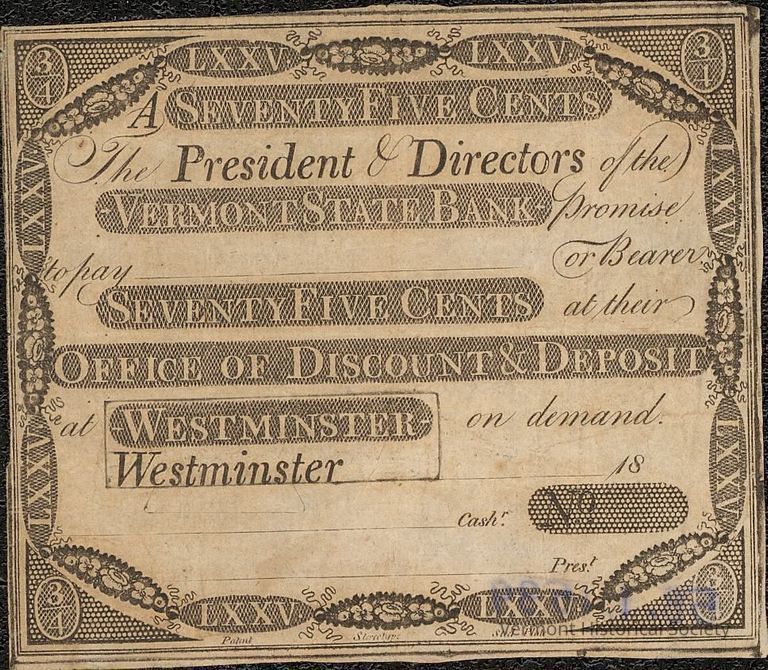 3/4 LXXV LXXV 3/4
A SEVENTY FIVE CENTS
The President & Directors of the
VERMONT STATE BANK Promise
to pay or Bearer
SEVENTY FIVE CENTS at their
OFFICE OF DISCOUNT & DEPOSIT
at WESTMINSTER on demand.
Westminster 18
Cashr. No
Prest
LXXV
LXXV
LXXV
LXXV
3/4 LXXV LXXV 3/4
Patent Stereotype
Vermont Historical Society